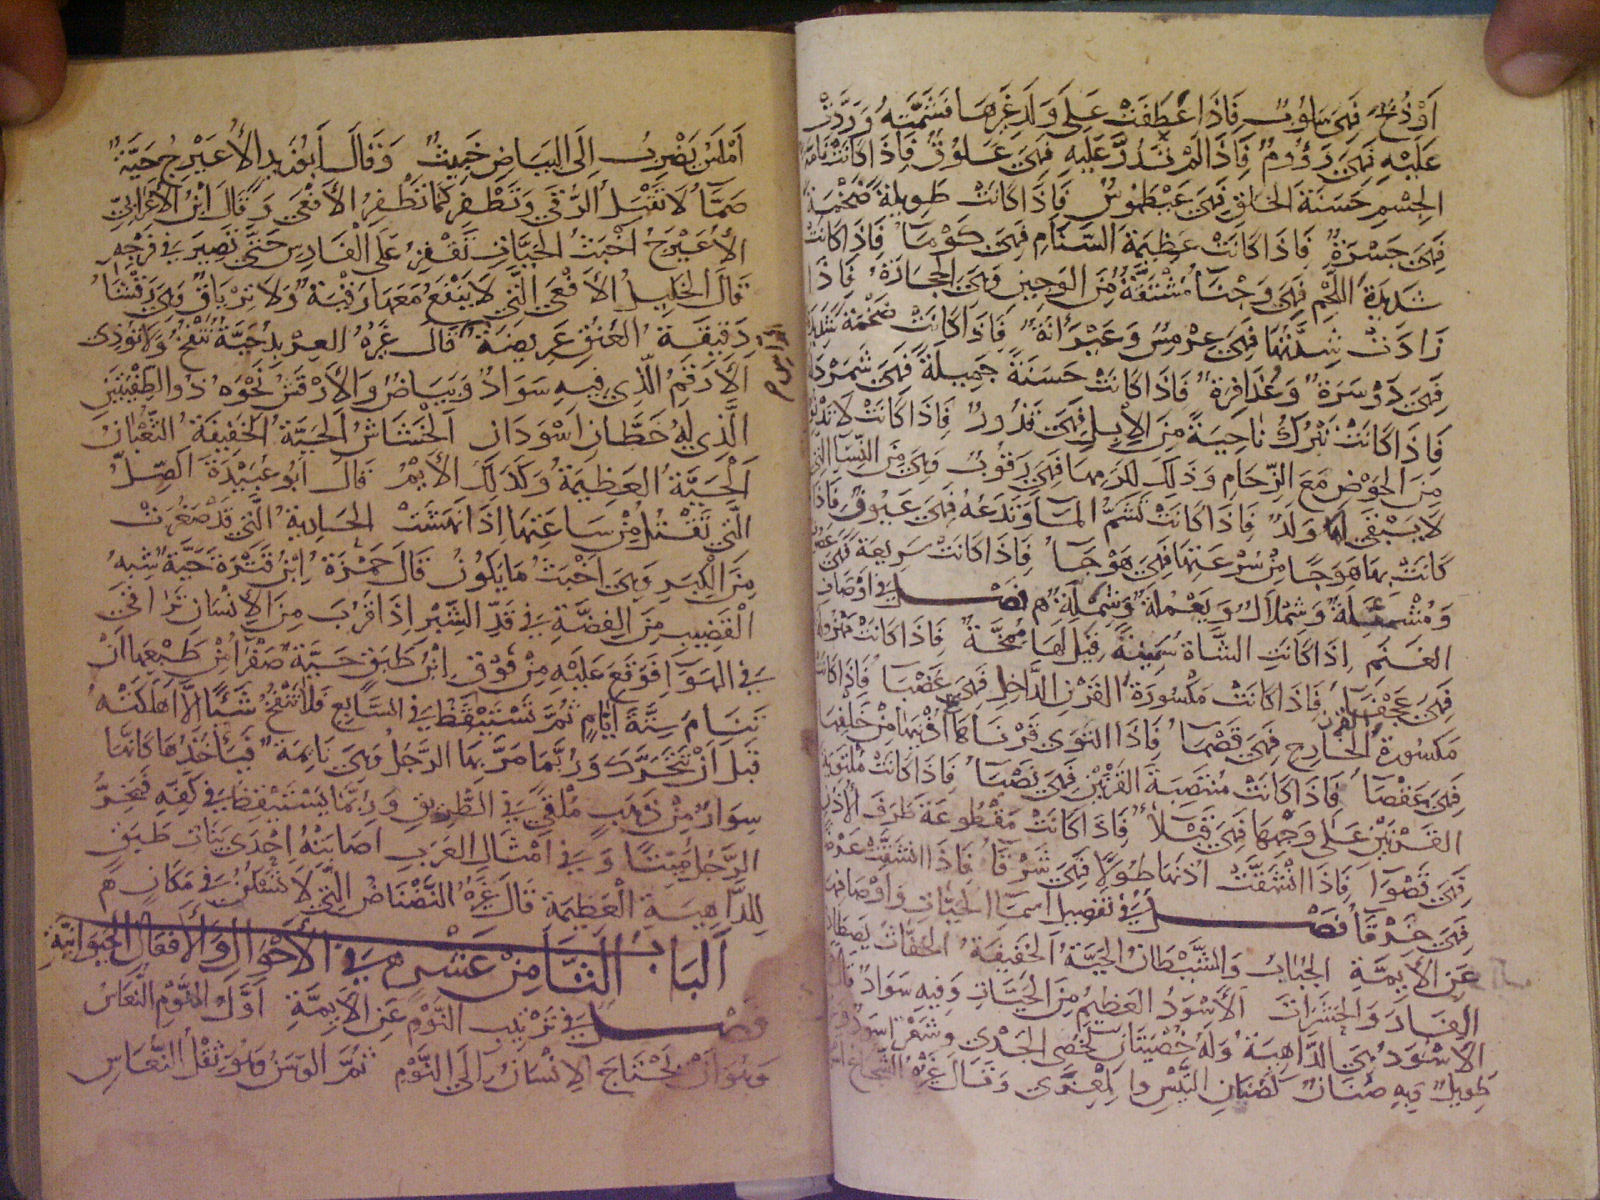 أو ذبح فهي سلوب فإذا عطفت على ولد غيرها فشمته ودرت
عليه فهي رؤوم فإذا لم تدر عليه فهي علوق فإذا كانت تامة
الجسم حسنة الخلق فهي عيطموس فإذا كانت طويلة ضخمة
فهي جسرة فإذا كانت عظيمة السنام فهي كوما فإذا كانت
شديدة اللحم فهي وجنا مشتقة من الوجين وهي الحجارة فإذا
زادت شدتها فهي عرمس وعيرانة فإذا كانت ضخمة شديدة
فهي دوسرة وعذافرة فإذا كانت حسنة جميلة فهي شمردلة
فإذا كانت تبرك ناحية من الإبل فهي قذور فإذا كانت لا تدنو
من الحوض مع الزحام وذلك لكرمها فهي رقوب وهي من النسا التي
لا يبقى لها ولد فإذا كانت تشم الما وتدعه فهي عيوف فإذا
كانت بها هوجا من سرعتها فهي هوجا فإذا كانت سريعة فهي
ومشمعلة وشملال ويعملة وشملة فصل في اوصاف
الغنم اذا كانت الشاة سمينة قيل لها ممخة فإذا كانت مهزولة
فهي عجفا فإذا كانت مكسورة القرن الداخل فهي عضبا فإذا كانت
مكسورة القرن الخارج فهي قصما فإذا التوى قرناها على أذنيها من خلفها
فهي عقصا فإذا كانت منتصبة القرنين فهي نصبا فإذا كانت ملتوية
القرنين على وجهها فهي قبلا فإذا كانت مقطوعة طرف الأذن
فهي قصوا فإذا انشقت اذنها طولا فهي شرقا فإذا انشقت عرضا
فهي خرقا فصل في تفصيل اسما الحيات واوصافها
عن الأيمة الحباب والشيطان الحية الخفيفة الحفاث يصطاد
الفار والحشرات الأسود العظيم من الحيات وفيه سواد قال
الأسود هي الداهية وله خصيتان كخصى الجدي وشعر اسود
طويل وبه صنان كصنان التيس والمعزى وقال غيره الشجاع
أملس يضرب إلى البياض خبيث وقال أبو زيد الأعيرج حية
صما لا تقبل الرقى وتطفر كما تطفر الأفعى وقال ابن الأعرابي
الأعيرج أخبث الحيات تقفز على الفارس حتى تصير في فرجه
قال الخليل الأفعى التي لا ينفع معها رقية ولا ترياق وهي رقشا
دقيقة العنق عريضة قال غيره العربد حية تنفخ ولا توذى
الأرقم الذي فيه سواد وبياض والأرقش نحوه ذو الطفيتين
الذي له خطان اسودان الخشاش الحية الخفيفة الثعبان
الحية العظيمة وكذلك الأيم قال أبو عبيدة الصل
التي تقتل من ساعتها إذا نهشت الحارية التي قد صغرت
من الكبر وهي أخبث ما يكون قال حمزة ابن قترة حية شبه
القضيب من الفضة في قد الشبر إذا قرب من الإنسان ترا ائى
في الهوا فوقع عليه من فوق ابن طبق حية صفرا من طبعها أن
تنام ستة أيام ثم تستيقظ في السابع فلا تنفخ شيئا الا اهلكته
قبل أن يتحرك وربما مر بها الرجل وهي نايمة فيأخذها كانها
سوار من ذهب ملقى في الطريق وربما يستيقظ في كفه فيخر
الرجل ميتا وفي امثال العرب اصابته احدى بنات طبق
للداهية العظيمة قال غيره النضناض التي لا تسكن في مكان
الباب الثامن عشر في الأحوال والأفعال الحيوانية
فصل في ترتيب النوم عن الأيمة أول النوم النعاس
وهو أن يحتاج الإنسان إلى النوم ثم الوسن وهو ثقل النعاس